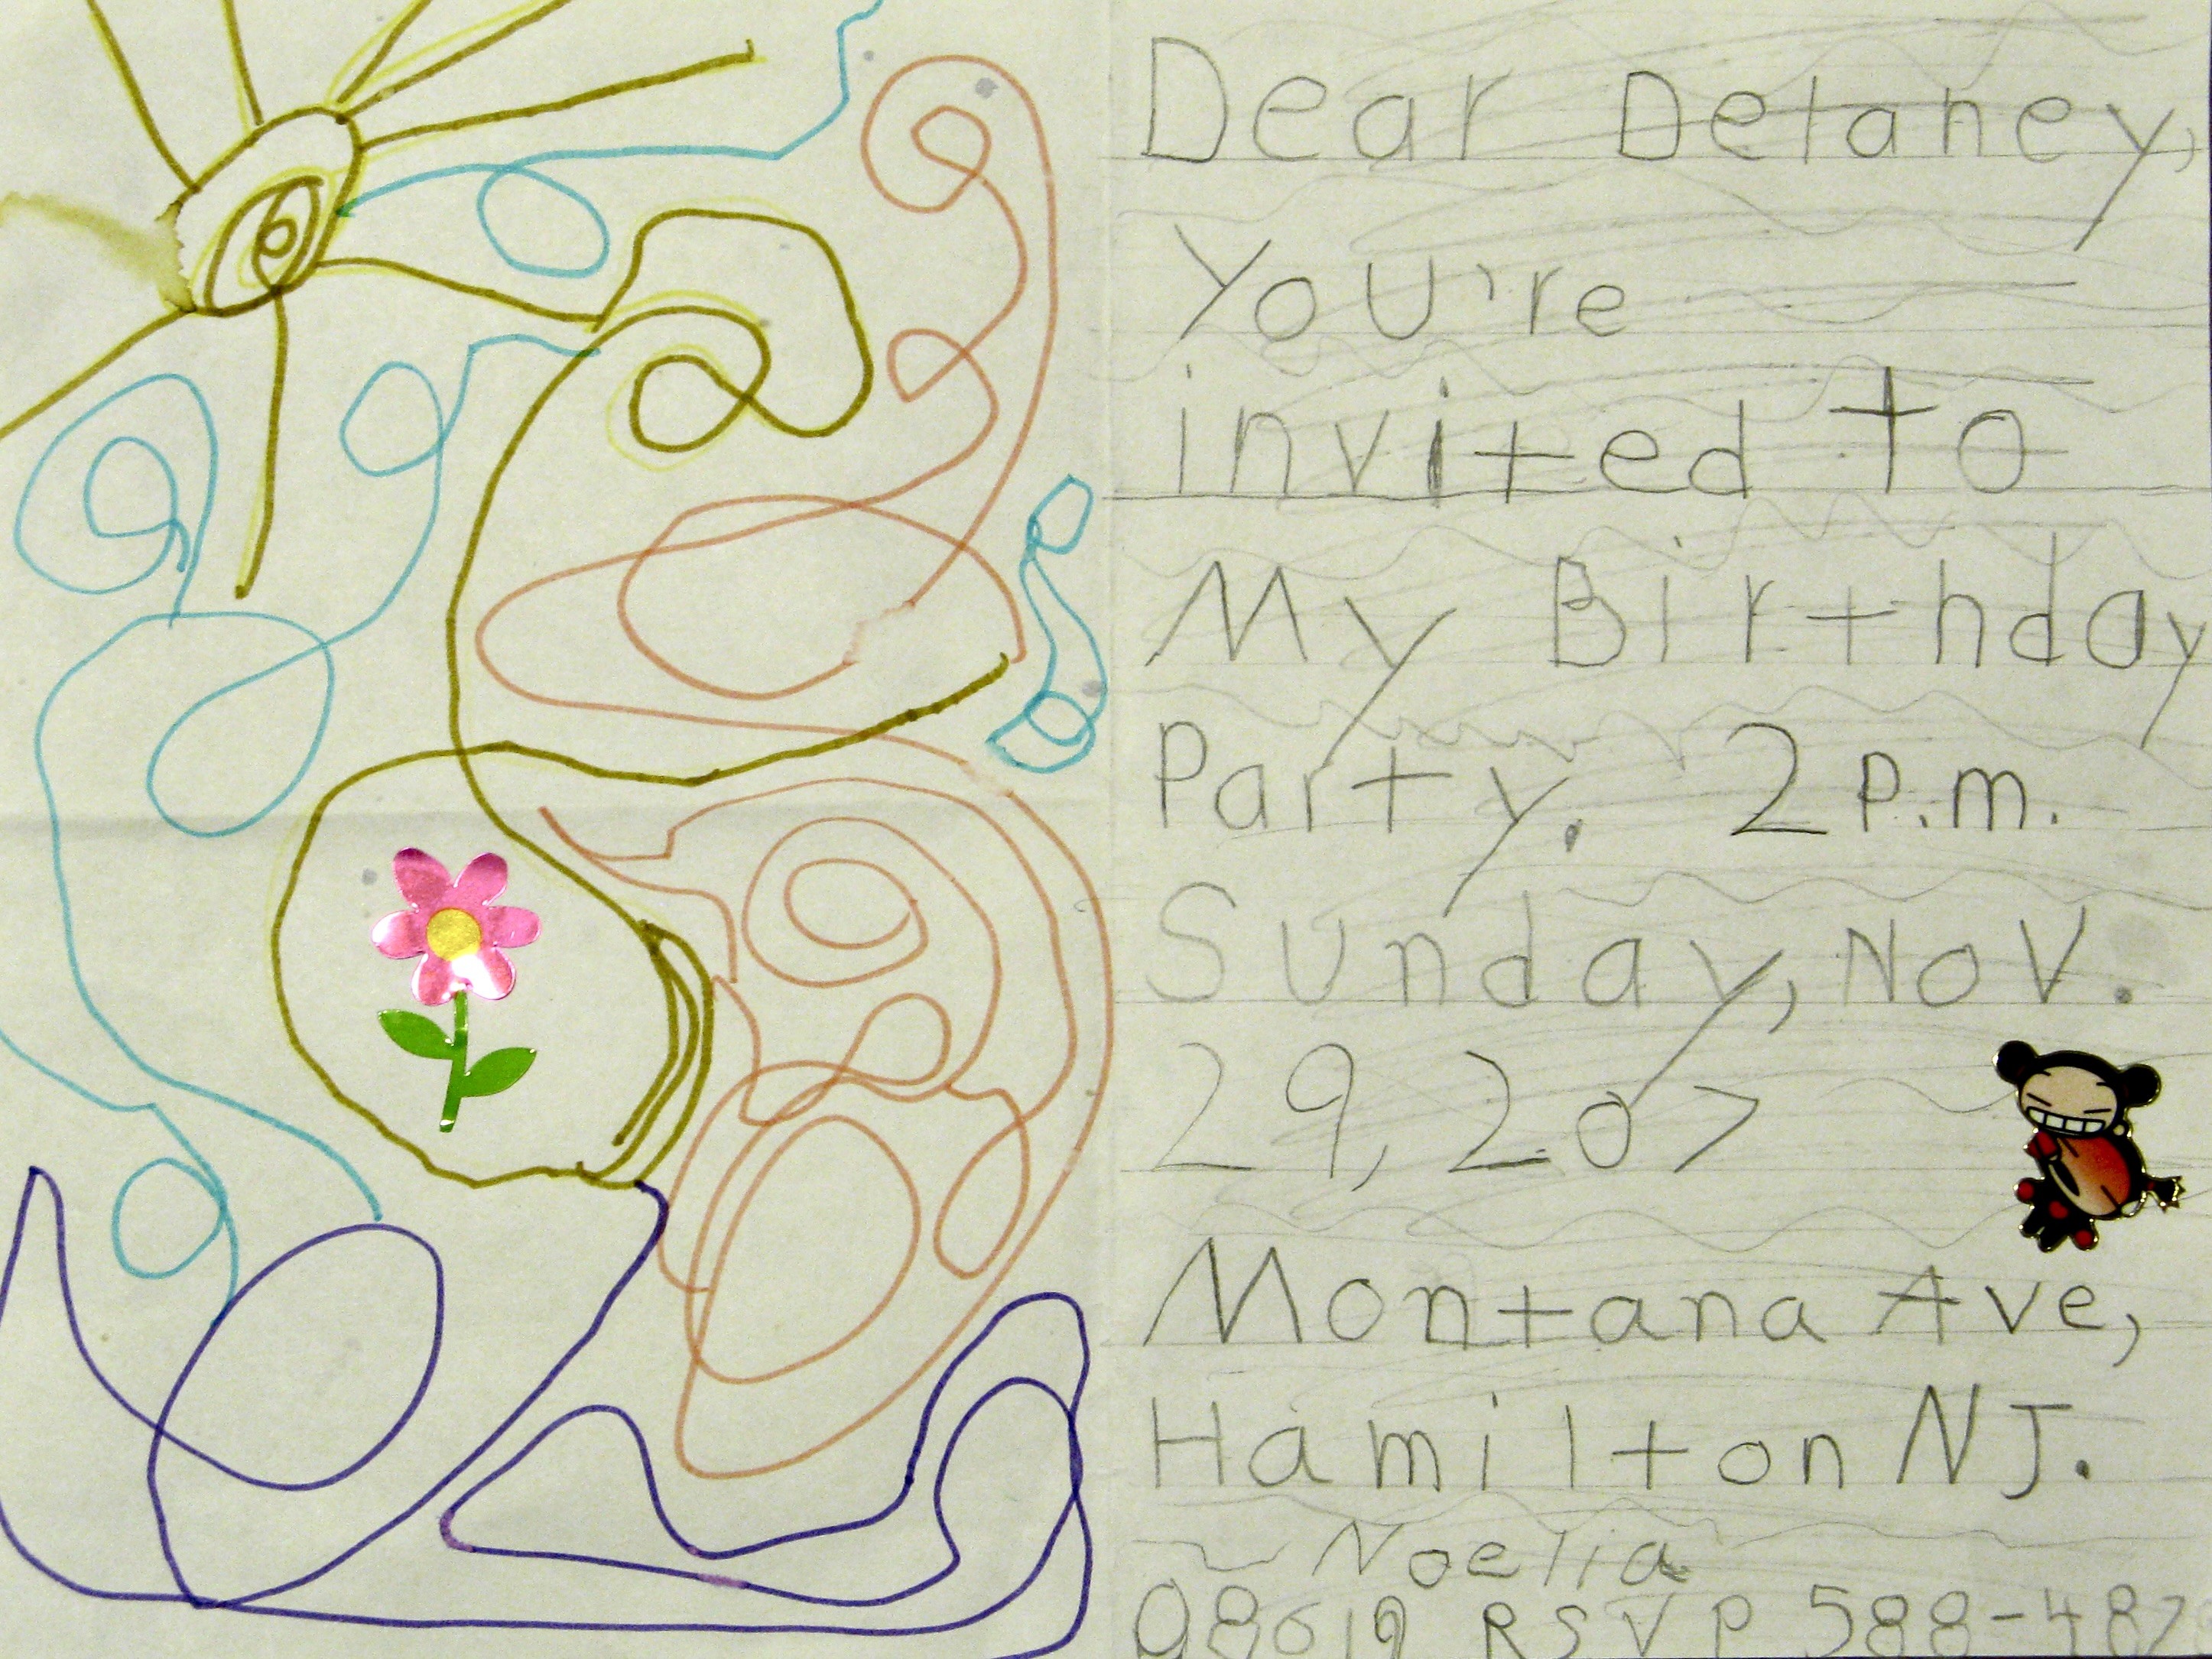 Dear Delaney,
You're
invited to
My Birthday
Party. 2 P.m.
Sunday, Nov.
29, 207
Montana Ave,
Hamilton NJ.
~ Noelia
08619 RSVP 588-487